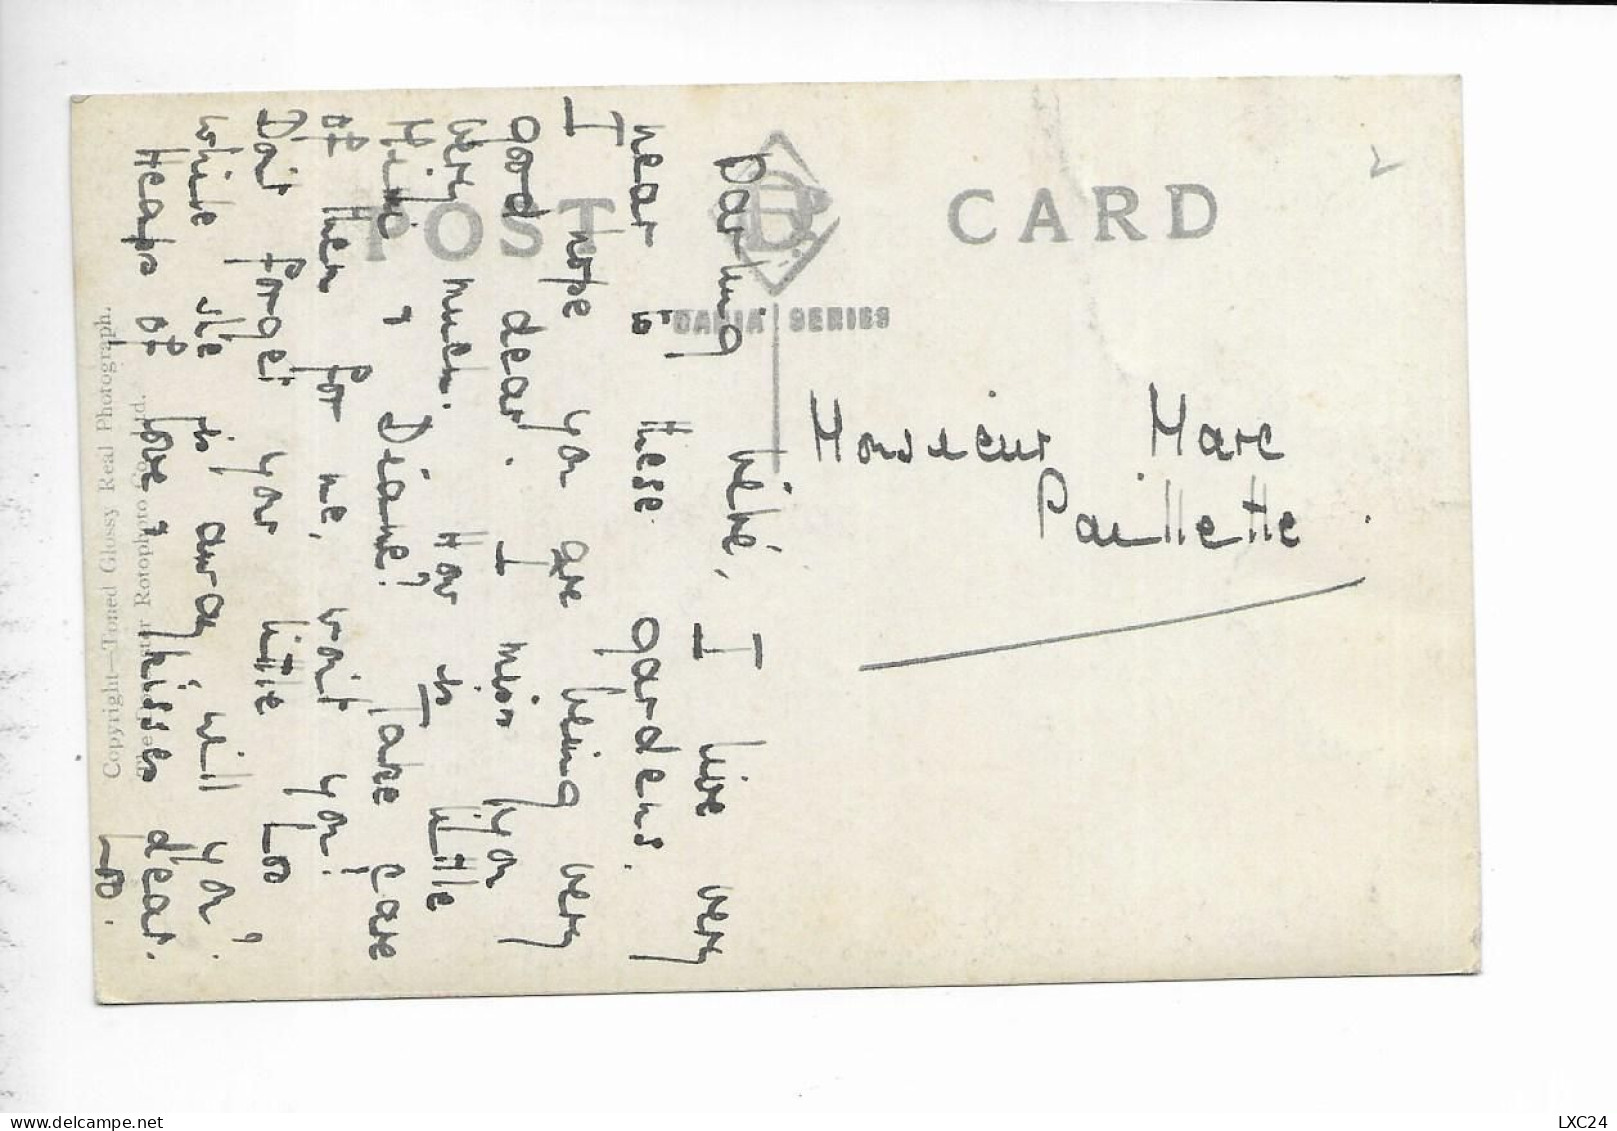 POST CARD
B
DAINTY SERIES
Darling bébé, I live very
near to these gardens.
I hope you are being very
good dear. I miss you
very much. How is little
Mimi & Diane? Take care
of them for me, won't you!
Don't forget your little Loo
while she is away, will you?
Heaps of love & kisses dear.
Loo.
Monsieur Marc
Paillette.
Copyright—Toned Glossy Real Photograph.
Rotophoto Co. Ltd.
LXC24